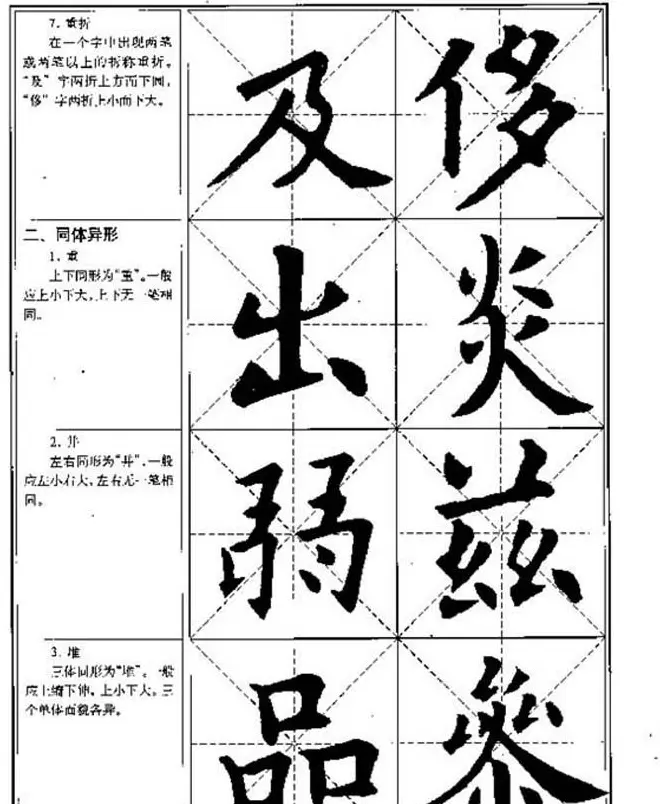 7. 重折
在一个字中出现两笔
或两笔以上的折称重折。
“及”字两折上方而下圆,
“侈”字两折上小而下大。
及 侈
二、同体异形
1. 重
上下同形为“重”。一般
应上小下大,上下无一笔相
同。
出 炎
2. 并
左右同形为“并”,一般
应左小右大,左右无一笔相
同。
弱 兹
3. 堆
三体同形为“堆”。一般
应上缩下伸,上小下大,三
个单体面貌各异。
品 叅